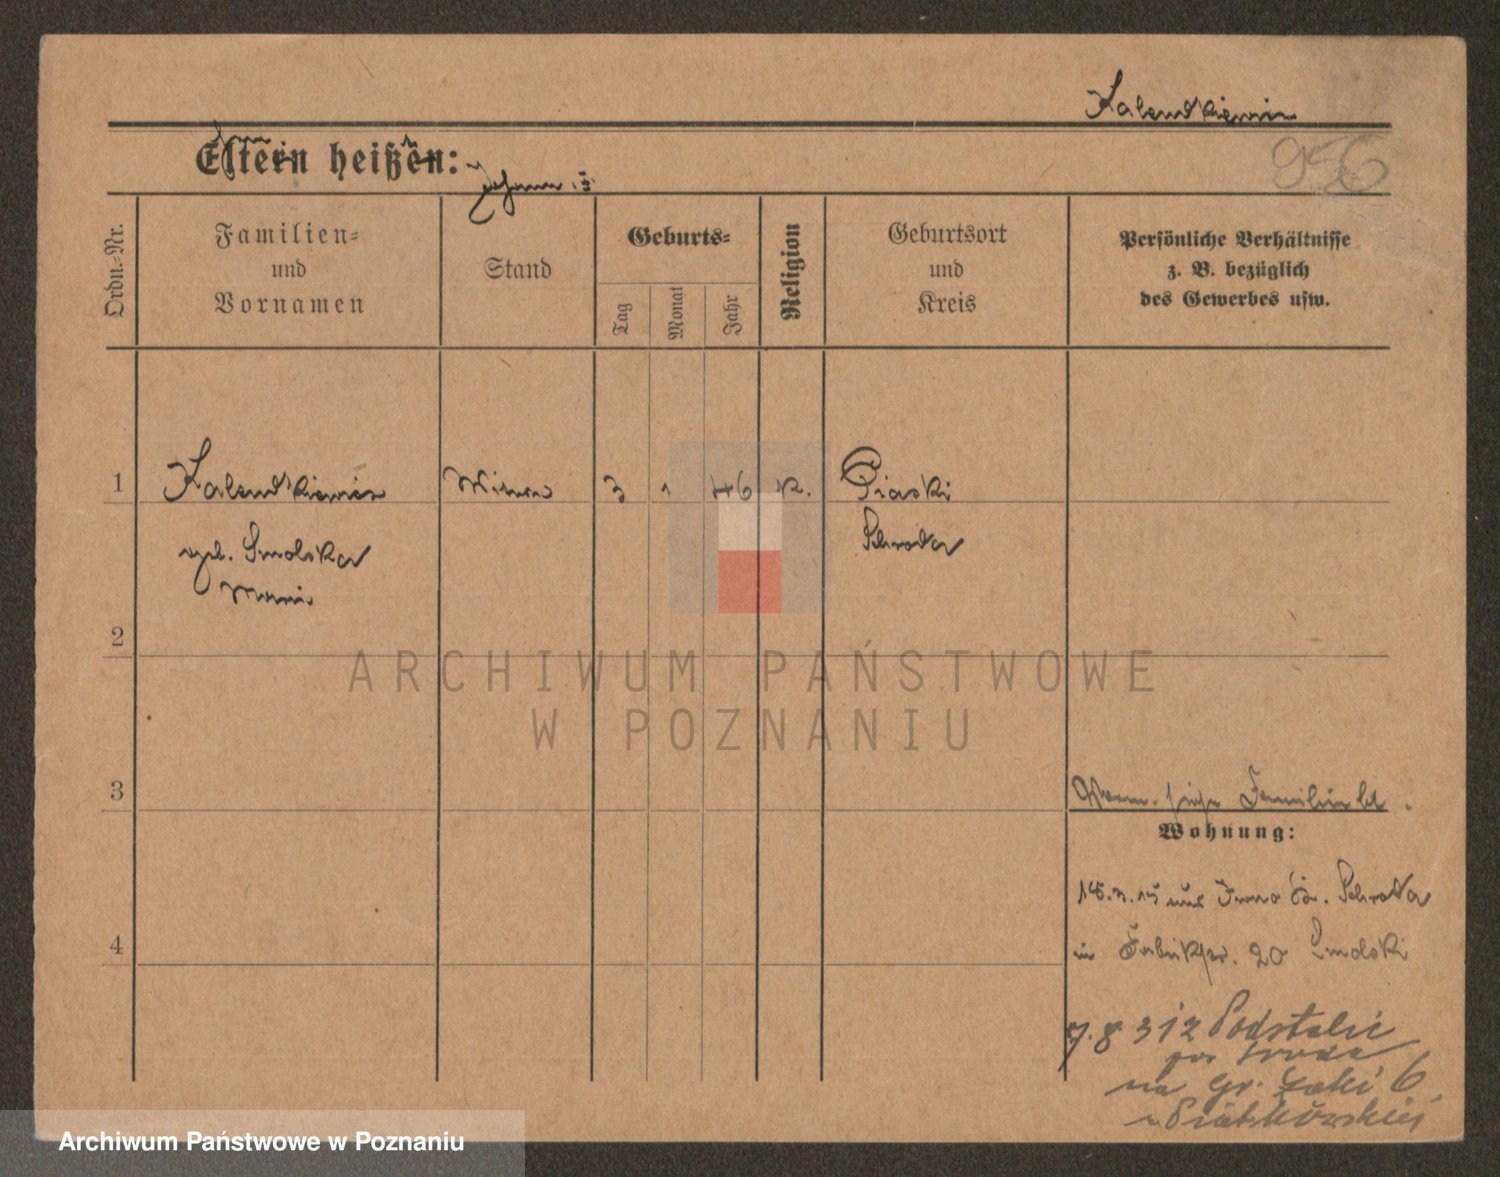 Kalendkiewicz
956
Eltern heißen:
Johann
Ordn.-Nr.
Familien-
und
Vornamen
Stand
Geburts-
Tag
Monat
Jahr
Religion
Geburtsort
und
Kreis
Persönliche Verhältnisse
z. B. bezüglich
des Gewerbes usw.
1 Kalendkiewicz Witwe 3 1 46 K. Piaski
geb. Smolska Schroda
Marie
2
ARCHIWUM PAŃSTWOWE
W POZNANIU
3
Familienbl.
Wohnung:
Schroda
4
in 20 Smolski
7.8 312 Podstolic
pow Sroda
na Gr. Łąki 6
u Piątkowskiej
Archiwum Państwowe w Poznaniu